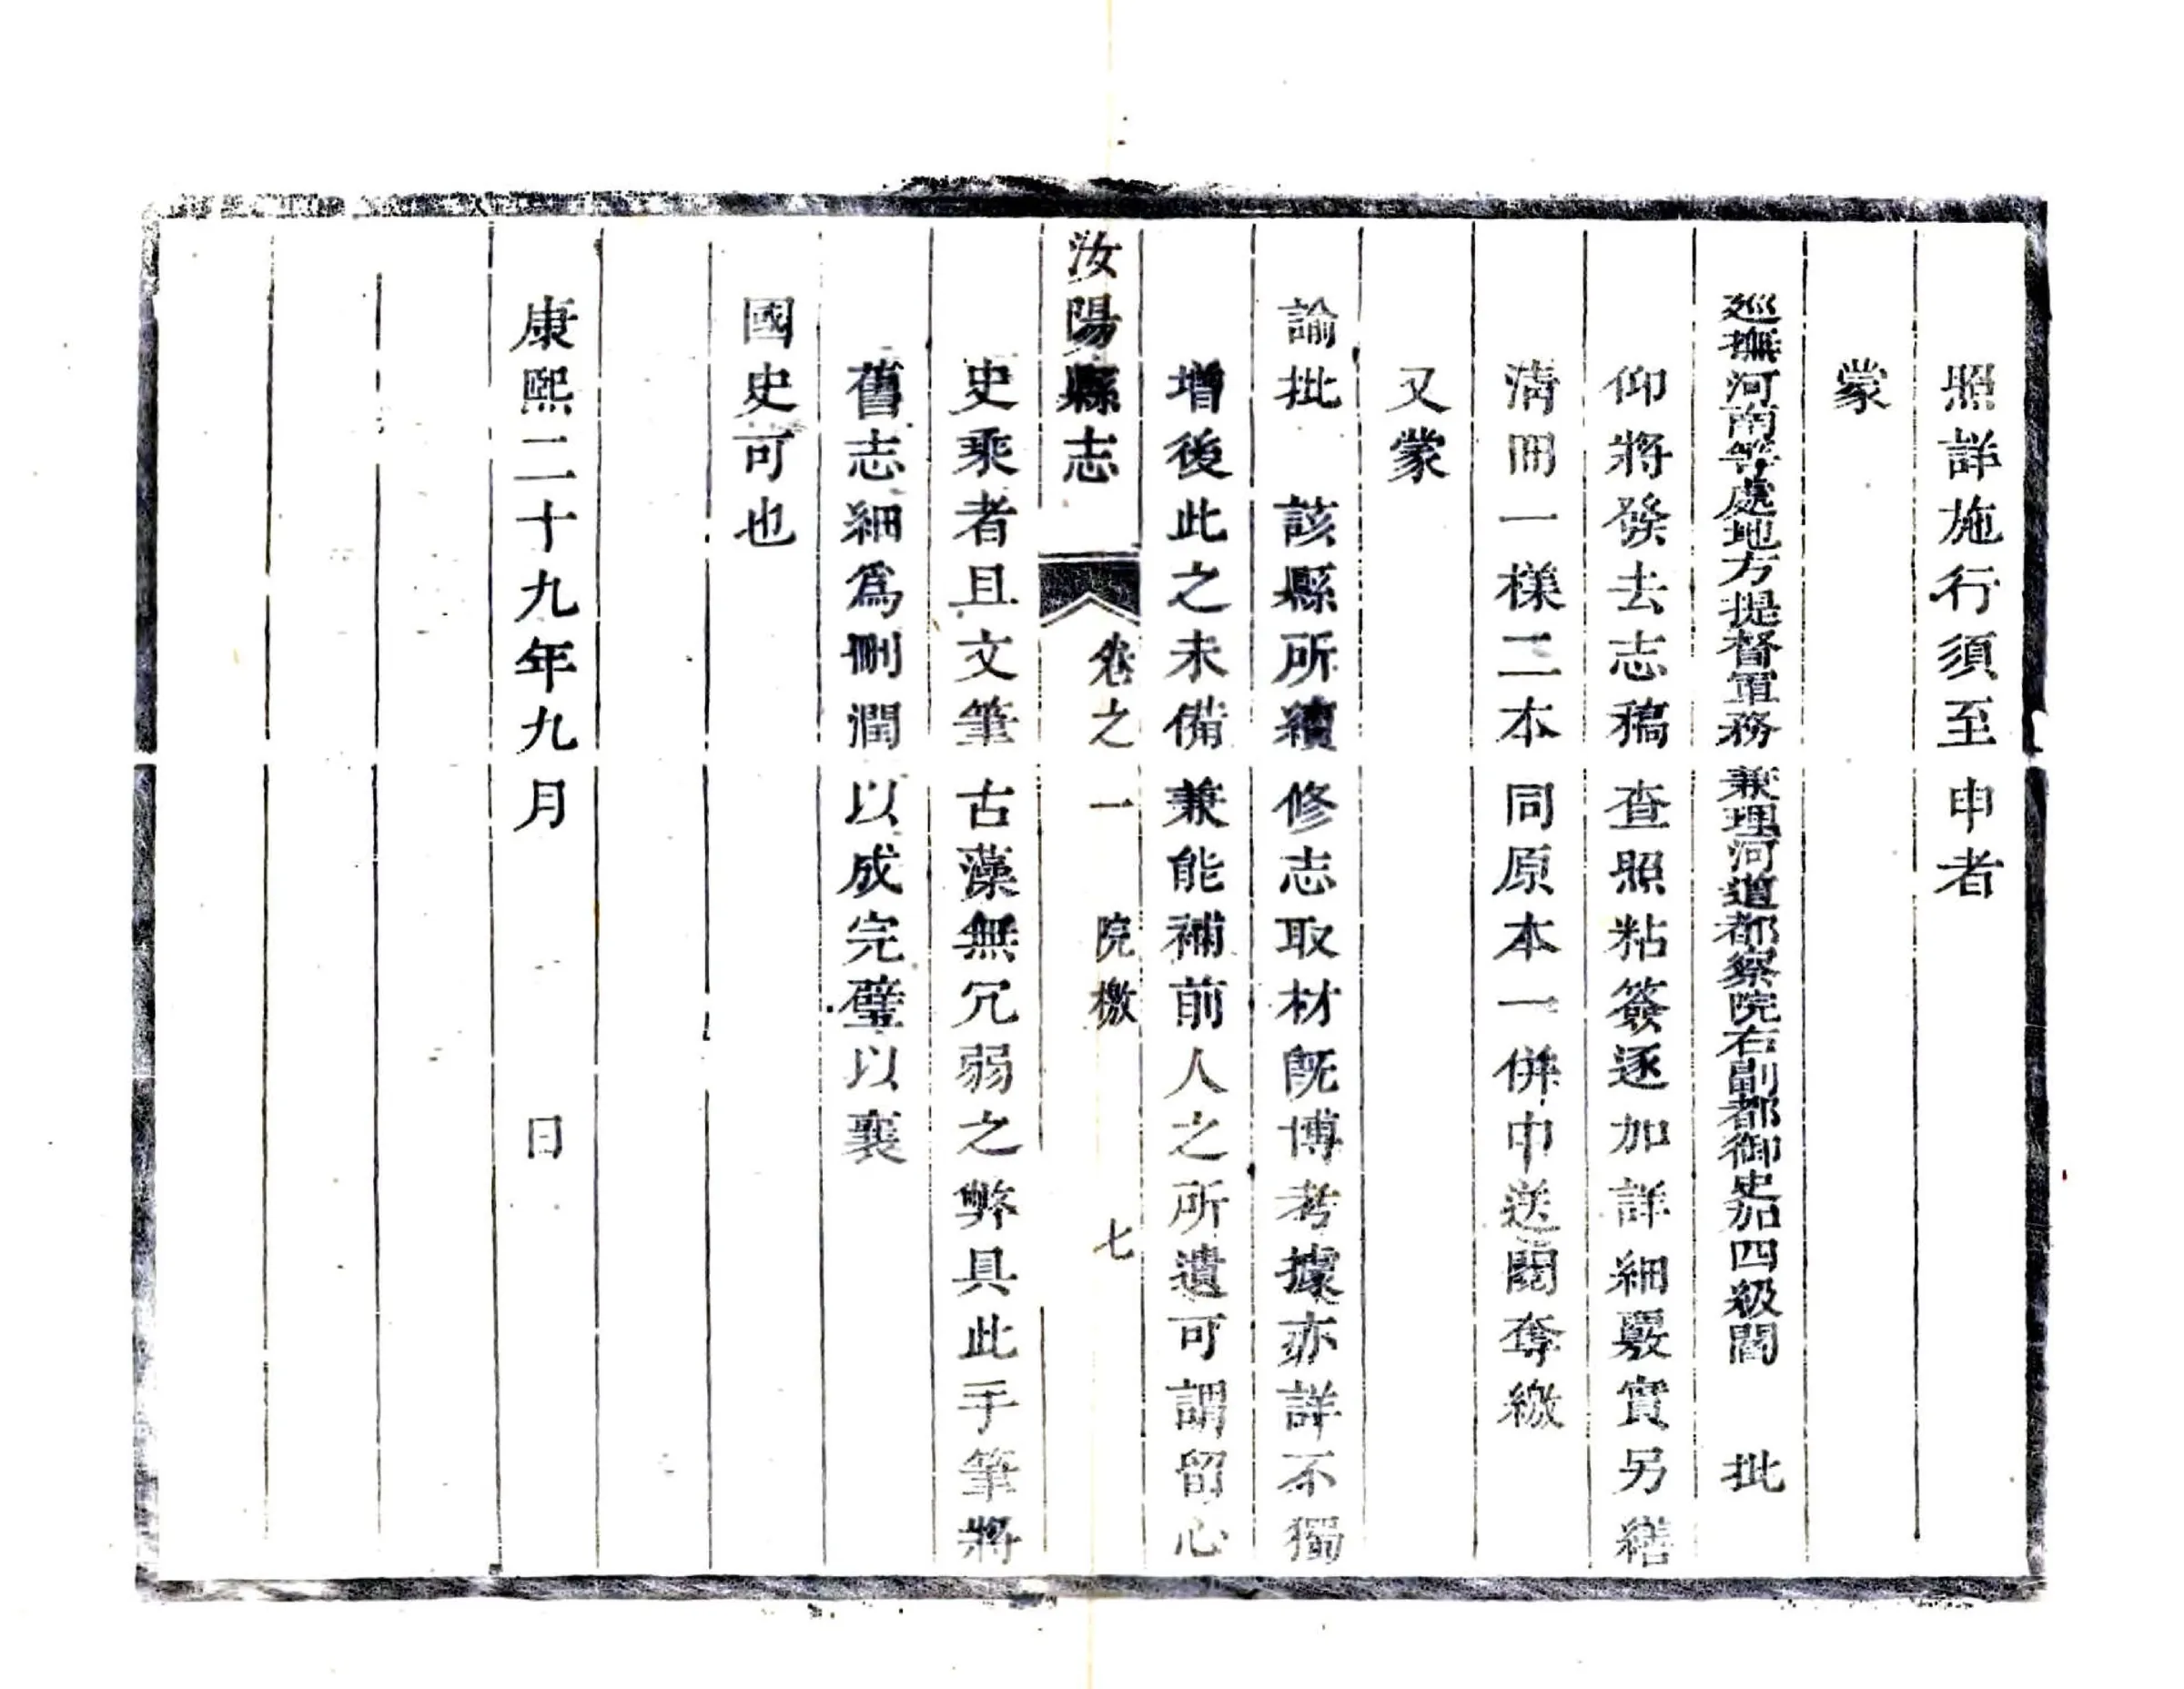 照詳施行須至申者
蒙
巡撫河南等處地方提督軍務兼理河道都察院右副都御史加四級閻 批
仰將發去志稿查照粘簽逐加詳細覈實另繕
清冊一樣二本同原本一併申送閱奪繳
又蒙
諭批 該縣所續修志取材旣博考據亦詳不獨
增後此之未備兼能補前人之所遺可謂留心
汝陽縣志 卷之一 院檄 七
史乘者且文筆古藻無冗弱之弊具此手筆將
舊志細爲刪潤以成完璧以襄
國史可也
康熙二十九年九月 日